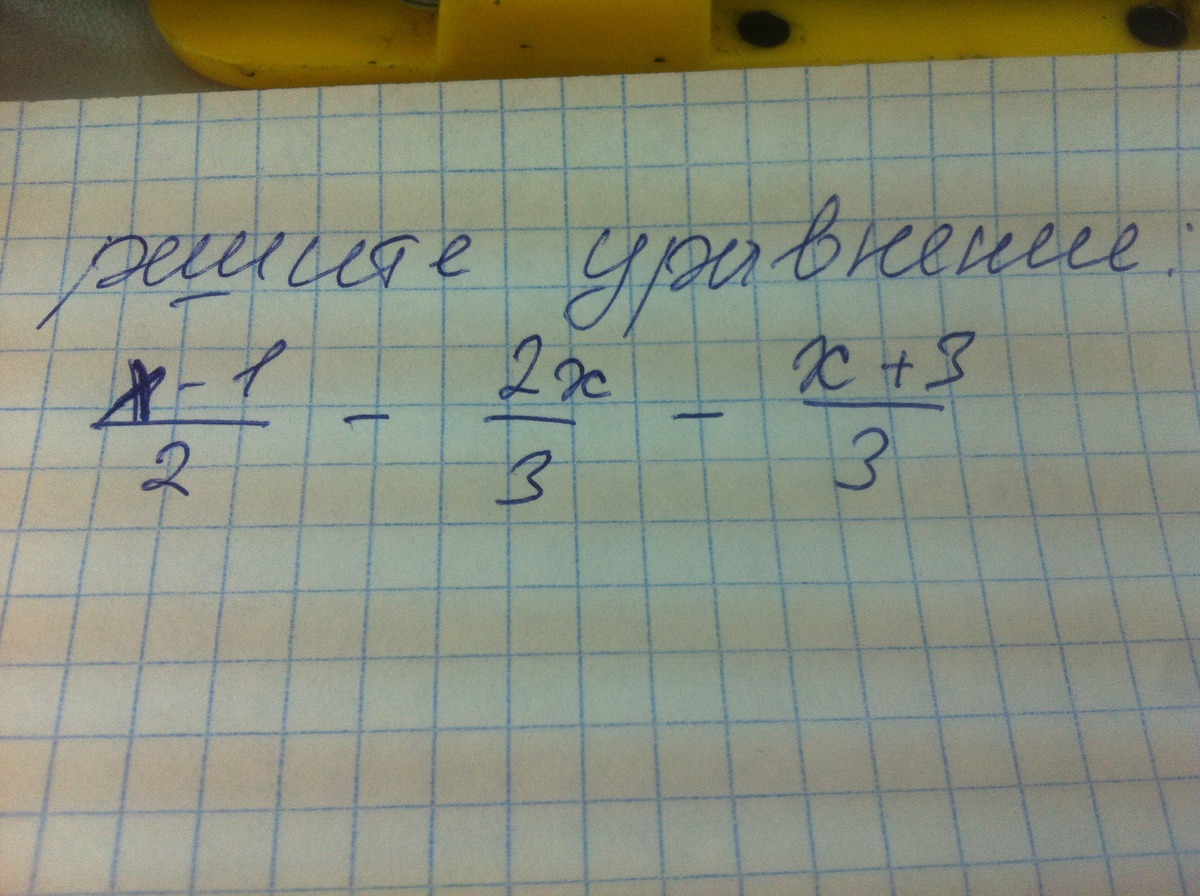 решите уравнение:
x-1/2 - 2x/3 - x+3/3